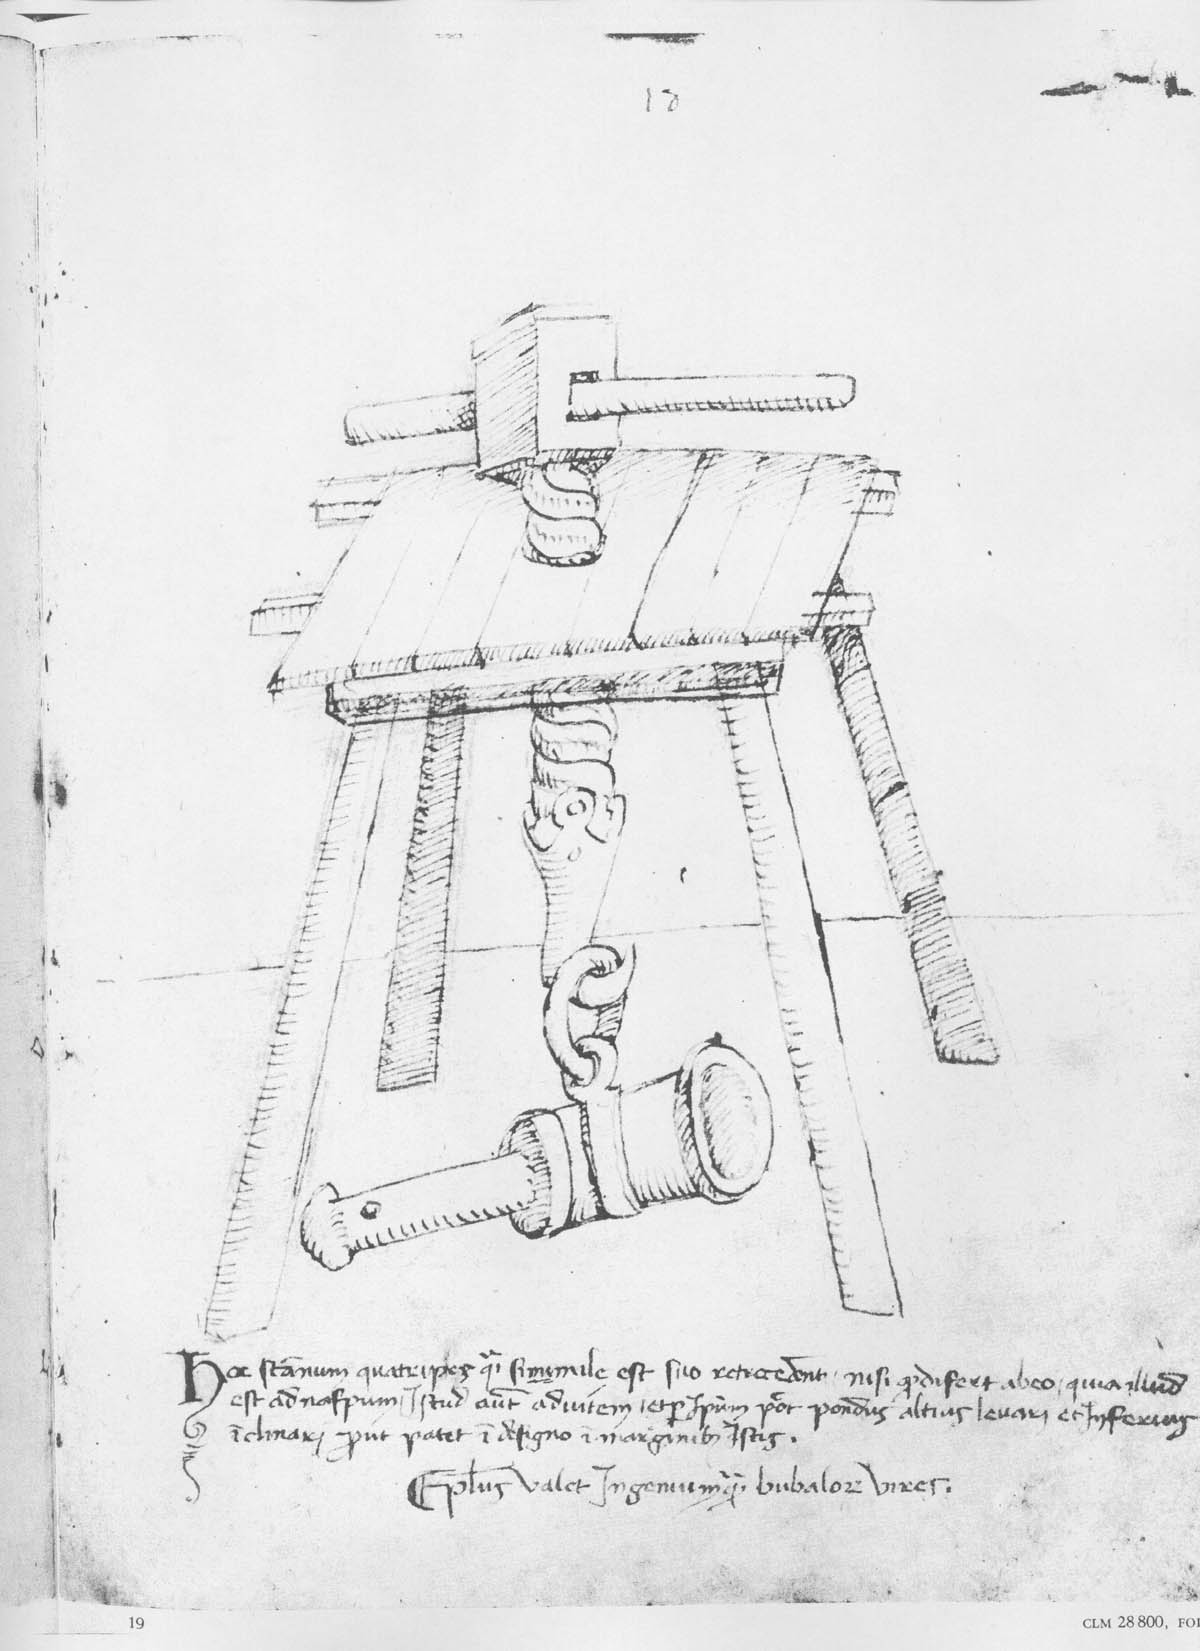 18
Hoc scānum quatripes q̄i sinmmile est suo retrocedent nisi qd difert abeo quia illud
est ad naspum Istud aūt ad vitem et p̱ Ipm pōt pondus altius levari et Inferius
īclinari prout patet ī dessigno ī marginibȝ Istis.
plus valet Ingenium q̄ bubaloꝝ vires.
19
CLM 28 800, FOL